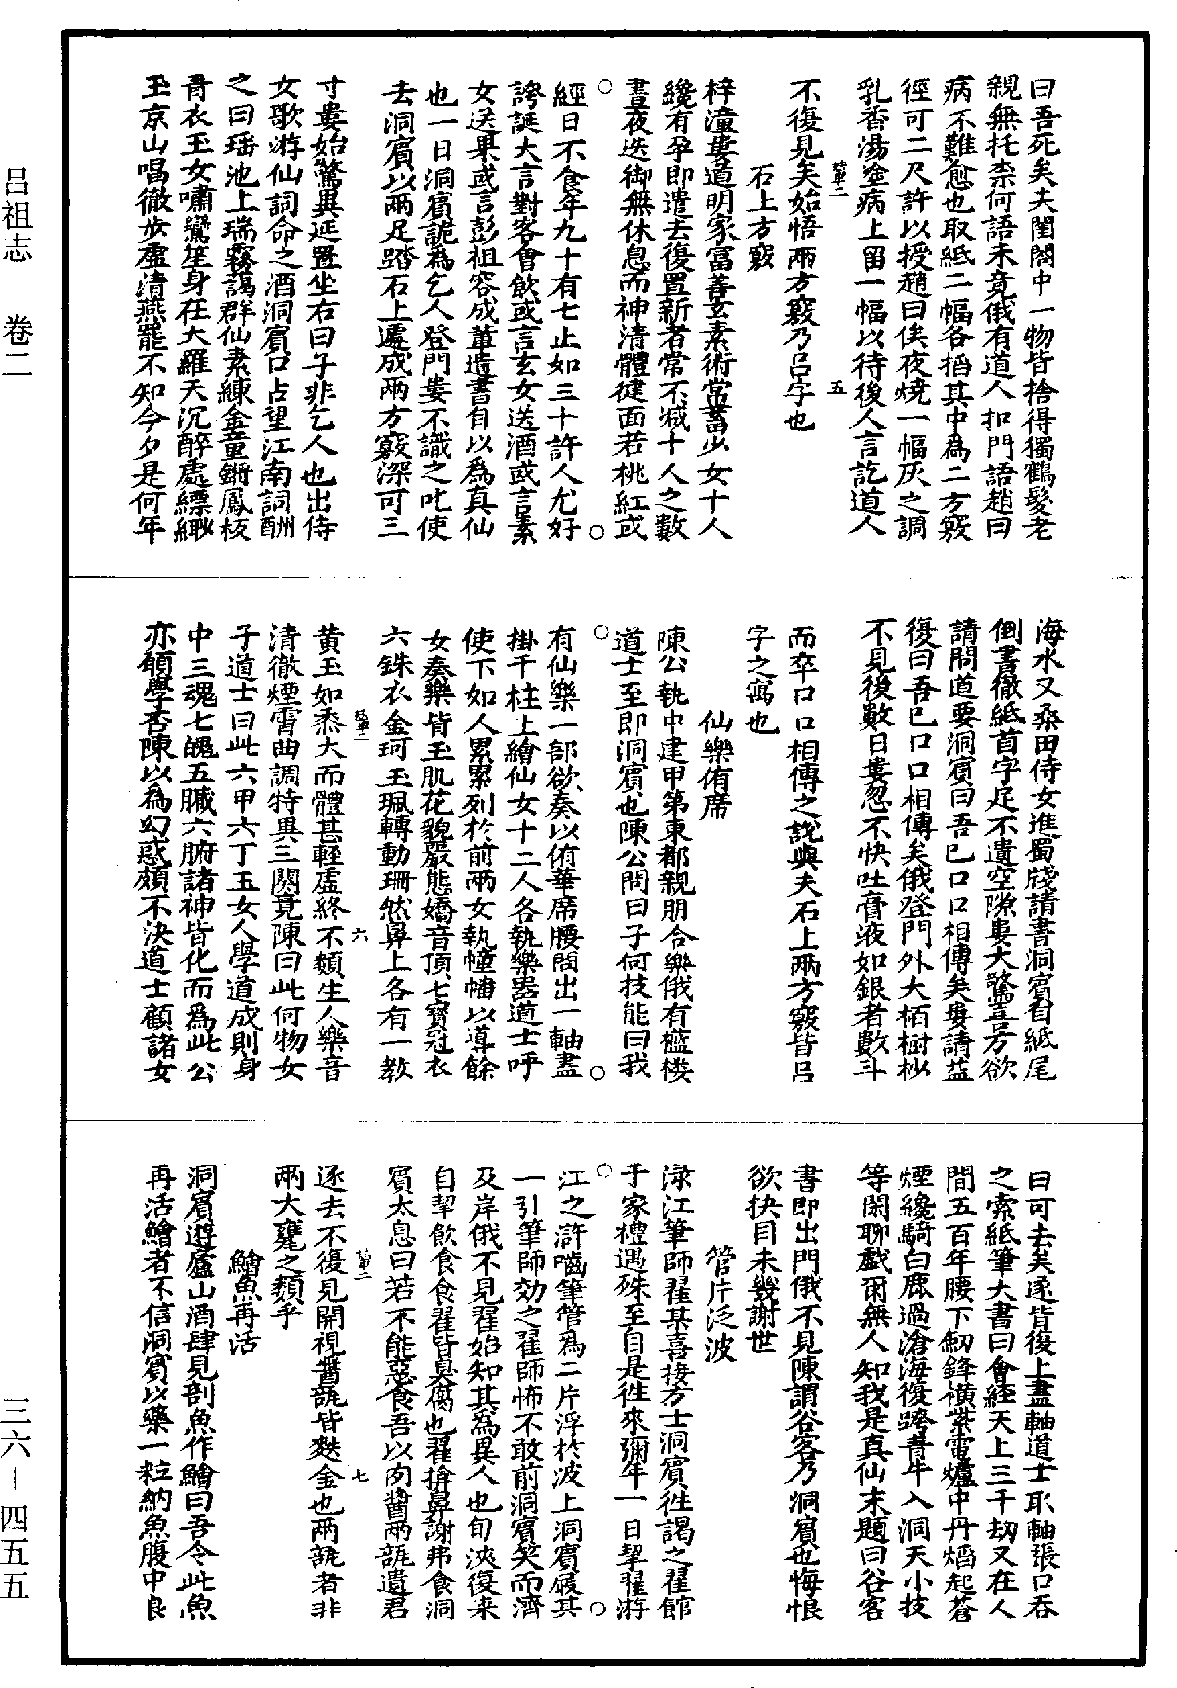 呂祖志 卷二
三六—四五五
曰吾死矣夫閨閤中一物皆捨得獨鶴髮老
親無托柰何語未竟俄有道人扣門語趙曰
病不難愈也取紙二幅各搯其中為二方竅
徑可二尺許以授趙曰俟夜燒一幅灰之調
乳香湯塗病上留一幅以待後人言訖道人
五
不復見矣始悟兩方竅乃呂字也
石上方竅
梓潼婁道明家富善玄素術常蓄少女十人
纔有孕即遣去復置新者常不減十人之數
晝夜迭御無休息而神清體健面若桃紅或
經日不食年九十有七止如三十許人尤好
誇誕大言對客會飲或言玄女送酒或言素
女送果或言彭祖容成輩遺書自以為真仙
也一日洞賓詭為乞人登門婁不識之叱使
去洞賓以兩足踏石上遽成兩方竅深可三
寸婁始驚異延置坐右曰子非乞人也出侍
女歌游仙詞命之酒洞賓口占望江南詞酬
之曰瑤池上瑞霧藹群仙素練金童鏘鳳板
青衣玉女嘯鸞笙身在大羅天沉醉處縹緲
玉京山唱徹步虛清燕罷不知今夕是何年
海水又桑田侍女進蜀牋請書洞賓自紙尾
倒書徹紙首字足不遺空隙婁大驚喜方欲
請問道要洞賓曰吾已口口相傳矣婁請益
復曰吾已口口相傳矣俄登門外大栢樹杪
不見後數日婁忽不快吐膏液如銀者數斗
而卒口口相傳之說與夫石上兩方竅皆呂
字之寓也
仙樂侑席
陳公執中建甲第東都親朋合樂俄有襤褸
道士至即洞賓也陳公問曰子何技能曰我
有仙樂一部欲奏以侑華席腰間出一軸畫
掛于柱上繪仙女十二人各執樂器道士呼
使下如人累累列於前兩女執幢幡以導餘
女奏樂皆玉肌花貌嚴態嬌音頂七寶冠衣
六銖衣金珂玉珮轉動珊然鼻上各有一教
黃玉如黍大而體甚輕虛終不類生人樂音
六
清徹煙霄曲調特異三闋竟陳曰此何物女
子道士曰此六甲六丁玉女人學道成則身
中三魂七魄五臟六腑諸神皆化而為此公
亦願學否陳以為幻惑頗不決道士顧諸女
曰可去矣遂皆復上畫軸道士取軸張口吞
之索紙筆大書曰會經天上三千劫又在人
間五百年腰下劒鋒橫紫電爐中丹熖起蒼
煙纔騎白鹿過滄海復跨青牛入洞天小技
等閑聊戲爾無人知我是真仙末題曰谷客
書即出門俄不見陳謂谷客乃洞賓也悔恨
欲抉目未幾謝世
管片泛波
淥江筆師翟某喜接方士洞賓徃謁之翟館
于家禮遇殊至自是徃來彌年一日挈翟游
江之滸嚙筆管為二片浮於波上洞賓履其
一引筆師効之翟師怖不敢前洞賓笑而濟
及岸俄不見翟始知其為異人也旬浹復来
自挈飲食食翟皆臭腐也翟揜鼻謝弗食洞
賓太息曰若不能惡食吾以肉醬兩瓿遺君
遂去不復見開視醬瓿皆麩金也兩瓿者非
七
兩大甕之類乎
鱠魚再活
洞賓遊廬山酒肆見剖魚作鱠曰吾令此魚
再活鱠者不信洞賓以藥一粒納魚腹中良